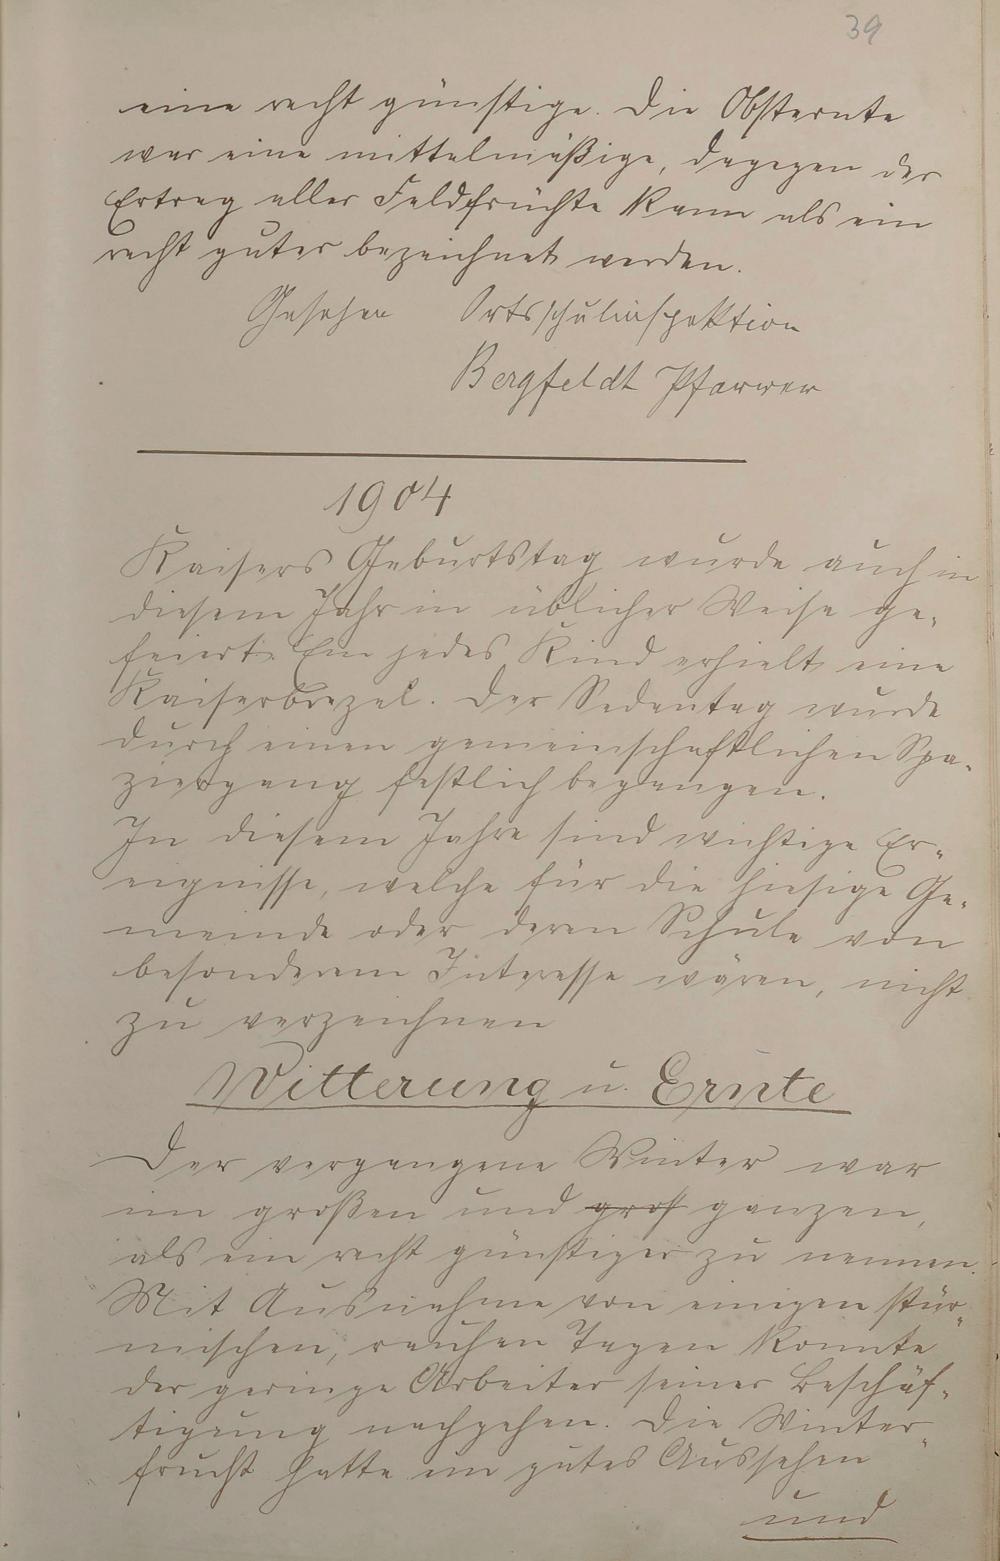 39
eine recht günstige. Die Obsternte
war eine mittelmäßige, dagegen der
Ertrag aller Feldfrüchte kann als ein
recht guter bezeichnet werden.
Gesehen Ortsschulinspektion
Bergfeldt Pfarrer
1904
Kaisers Geburtstag wurde auch in
diesem Jahr in üblicher Weise ge-
feiert. Ein jedes Kind erhielt eine
Kaiserbrezel. Der Sedantag wurde
durch einen gemeinschaftlichen Spa-
ziergang festlich begangen.
In diesem Jahre sind wichtige Er-
eignisse, welche für die hiesige Ge-
meinde oder deren Schule von
besonderem Interesse wären, nicht
zu verzeichnen
Witterung u. Ernte
Der vergangene Winter war
im großen und groß ganzen,
als ein recht günstiger zu nennen.
Mit Ausnahme von einigen stür-
mischen, rauhen Tagen konnte
der geringe Arbeiter seiner Beschäf-
tigung nachgehen. Die Winter-
frucht hatte ein gutes Aussehen
und